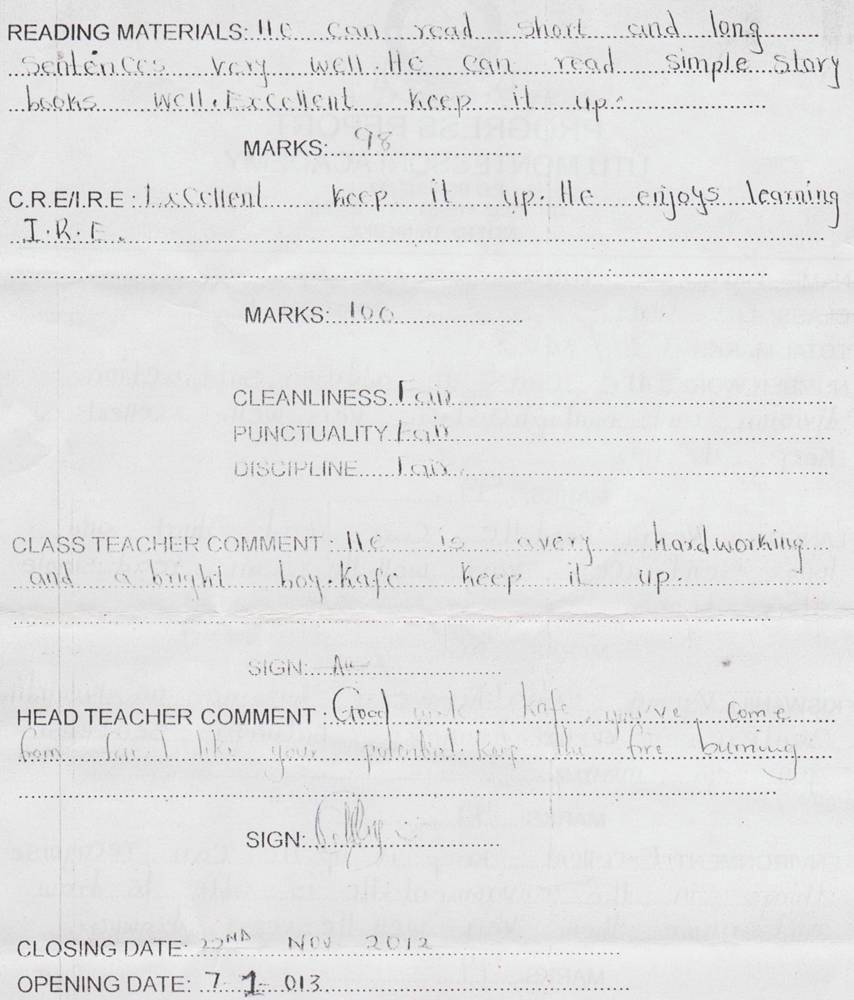 READING MATERIALS: He can read short and long
sentences very well. He can read simple story
books well. Excellent keep it up.
MARKS: 98
C.R.E/I.R.E : Excellent keep it up. He enjoys learning
I.R.E.
MARKS: 100
CLEANLINESS Fair
PUNCTUALITY Fair
DISCIPLINE Fair
CLASS TEACHER COMMENT : He is a very hardworking
and a bright boy. Kafe keep it up.
SIGN:
HEAD TEACHER COMMENT : Good work Kafe, you've come
from far I like your potential keep the fire burning
SIGN:
CLOSING DATE: 22ND NOV 2012
OPENING DATE: 7 1 013